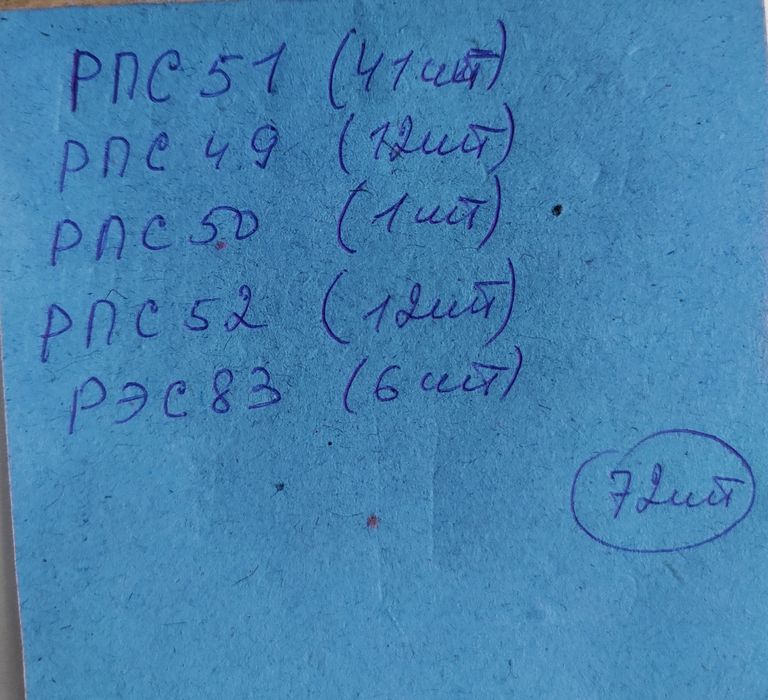 РПС 51 (41шт)
РПС 49 (12шт)
РПС 50 (1шт)
РПС 52 (12шт)
РЭС 83 (6шт)
72шт